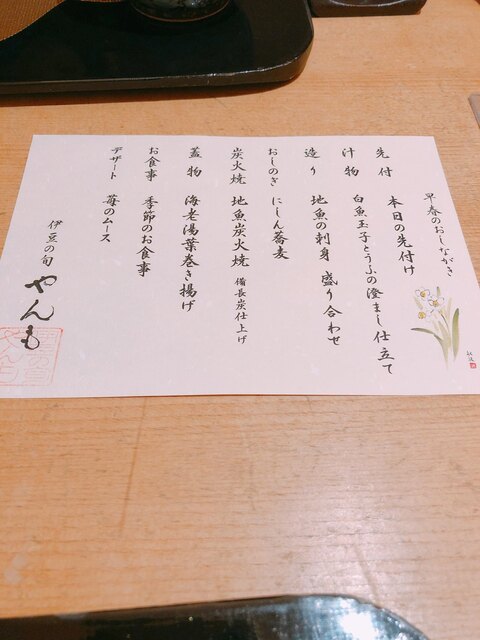 早春のおしながき
先付 本日の先付け
汁物 白魚玉子とうふの澄まし仕立て
造り 地魚の刺身 盛り合わせ
おしのぎ にしん蕎麦
炭火焼 地魚炭火焼 備長炭仕上げ
蓋物 海老湯葉巻き揚げ
お食事 季節のお食事
デザート 苺のムース
伊豆の旬
やんも